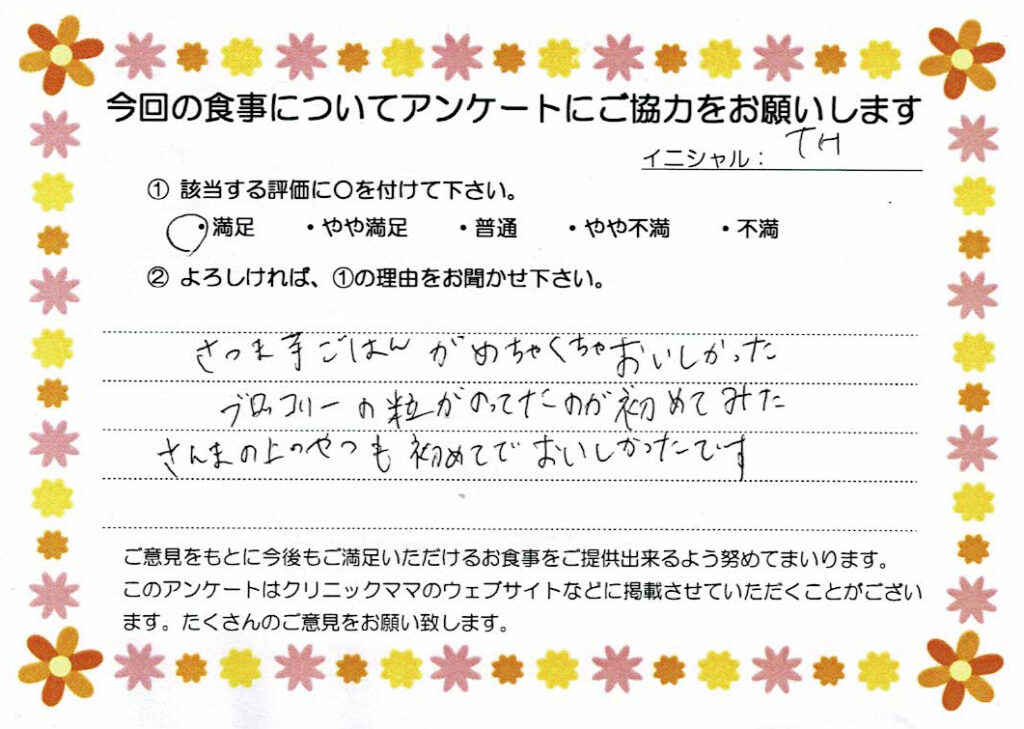 今回の食事についてアンケートにご協力をお願いします
イニシャル： TH
① 該当する評価に○を付けて下さい。
・満足 ・やや満足 ・普通 ・やや不満 ・不満
② よろしければ、①の理由をお聞かせ下さい。
さつま芋ごはんがめちゃくちゃおいしかった
ブロッコリーの粒がのってたのが初めてみた
さんまの上のやつも初めてでおいしかったです
ご意見をもとに今後もご満足いただけるお食事をご提供出来るよう努めてまいります。
このアンケートはクリニックママのウェブサイトなどに掲載させていただくことがござい
ます。たくさんのご意見をお願い致します。